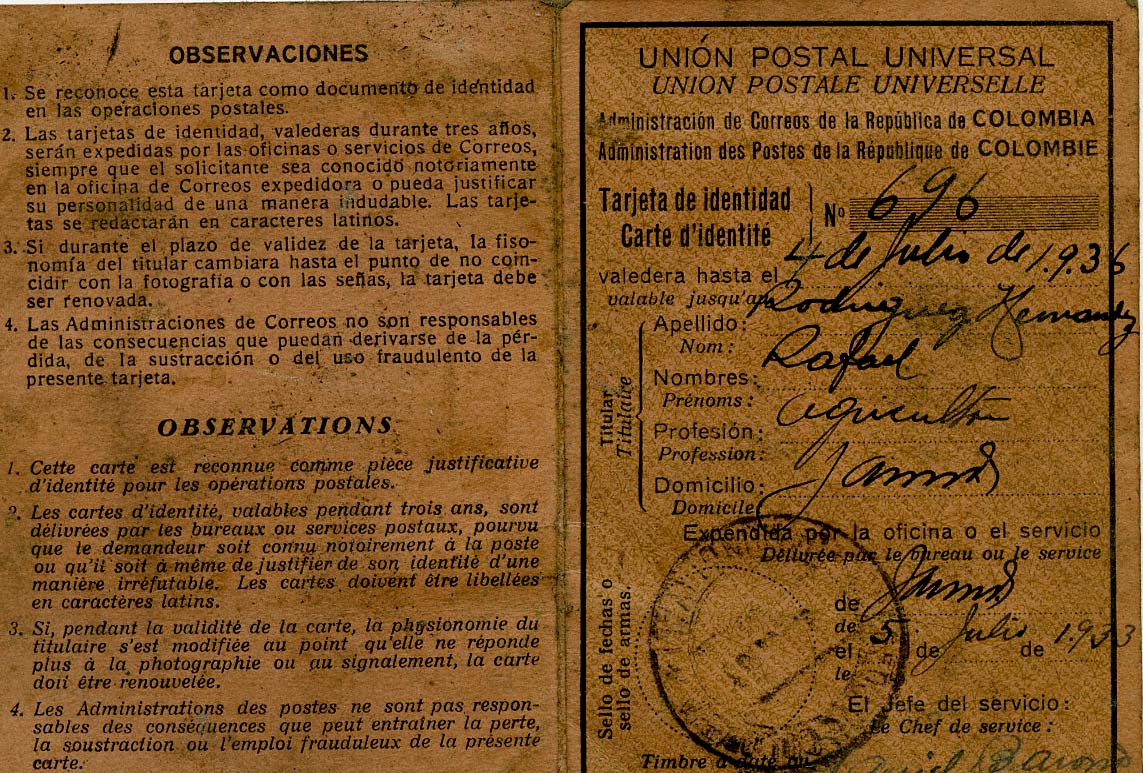 OBSERVACIONES
1. Se reconoce esta tarjeta como documento de identidad
en las operaciones postales.
2. Las tarjetas de identidad, valederas durante tres años,
serán expedidas por las oficinas o servicios de Correos,
siempre que el solicitante sea conocido notoriamente
en la oficina de Correos expedidora o pueda justificar
su personalidad de una manera indudable. Las tarje-
tas se redactarán en caracteres latinos.
3. Si durante el plazo de validez de la tarjeta, la fiso-
nomía del titular cambiara hasta el punto de no coin-
cidir con la fotografía o con las señas, la tarjeta debe
ser renovada.
4. Las Administraciones de Correos no son responsables
de las consecuencias que puedan derivarse de la pér-
dida, de la sustracción o del uso fraudulento de la
presente tarjeta.
OBSERVATIONS
1. Cette carte est reconnue comme pièce justificative
d'identité pour les opérations postales.
2. Les cartes d'identité, valables pendant trois ans, sont
délivrées par les bureaux ou services postaux, pourvu
que le demandeur soit connu notoirement à la poste
ou qu'il soit à même de justifier de son identité d'une
manière irréfutable. Les cartes doivent être libellées
en caractères latins.
3. Si, pendant la validité de la carte, la physionomie du
titulaire s'est modifiée au point qu'elle ne réponde
plus à la photographie ou au signalement, la carte
doit être renouvelée.
4. Les Administrations des postes ne sont pas respon-
sables des conséquences que peut entraîner la perte,
la soustraction ou l'emploi frauduleux de la présente
carte.
UNIÓN POSTAL UNIVERSAL
UNION POSTALE UNIVERSELLE
Administración de Correos de la República de COLOMBIA
Administration des Postes de la République de COLOMBIE
Tarjeta de identidad
Carte d'identité
Nº 696
valedera hasta el 4 de Julio de 1.936
valable jusqu'au
Titular
Titulaire
Apellido: Rodriguez Hernandez
Nom:
Nombres: Rafael
Prénoms:
Profesión: agricultor
Profession:
Domicilio:
Domicile
Expendida por la oficina o el servicio
Délivrée par le bureau ou le service
de
de
el 5 de Julio de 1.933
le
Sello de fechas o
sello de armas.
El Jefe del servicio:
Le Chef de service:
Timbre à date ou